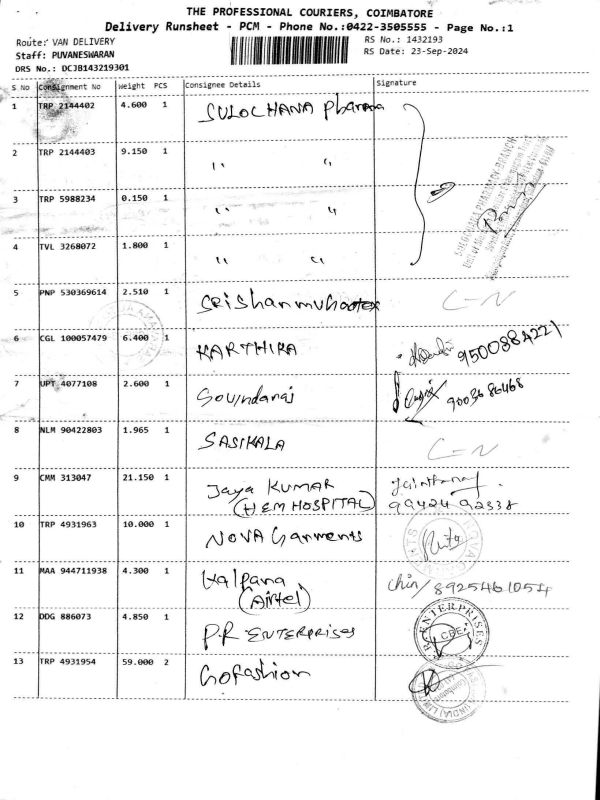 THE PROFESSIONAL COURIERS, COIMBATORE
Delivery Runsheet - PCM - Phone No.:0422-3505555 - Page No.:1
Route: VAN DELIVERY RS No.: 1432193
Staff: PUVANESWARAN RS Date: 23-Sep-2024
DRS No.: DCJB143219301
S No Consignment No Weight PCS Consignee Details Signature
1 TRP 2144402 4.600 1 SULOCHANA Pharma
2 TRP 2144403 9.150 1 " "
3 TRP 5988234 0.150 1 " "
4 TVL 3268072 1.800 1 " "
5 PNP 530369614 2.510 1 SRishanmuhaatex C-N
6 CGL 100057479 6.400 1 KARTHIKA 9500884221
7 UPT 4077108 2.600 1 Govindaraj 9003686468
8 NLM 90422803 1.965 1 SASIKALA C-N
9 CMM 313047 21.150 1 Jaya KUMAR
(HEM HOSPITAL) 99424 92338
10 TRP 4931963 10.000 1 NOVA Garments
11 MAA 944711938 4.300 1 Kalpana
(Airtel) 8925461054
12 DDG 886073 4.850 1 P.R ENTERPRISES ENTERPRISES
CBE
13 TRP 4931954 59.000 2 Gofashion